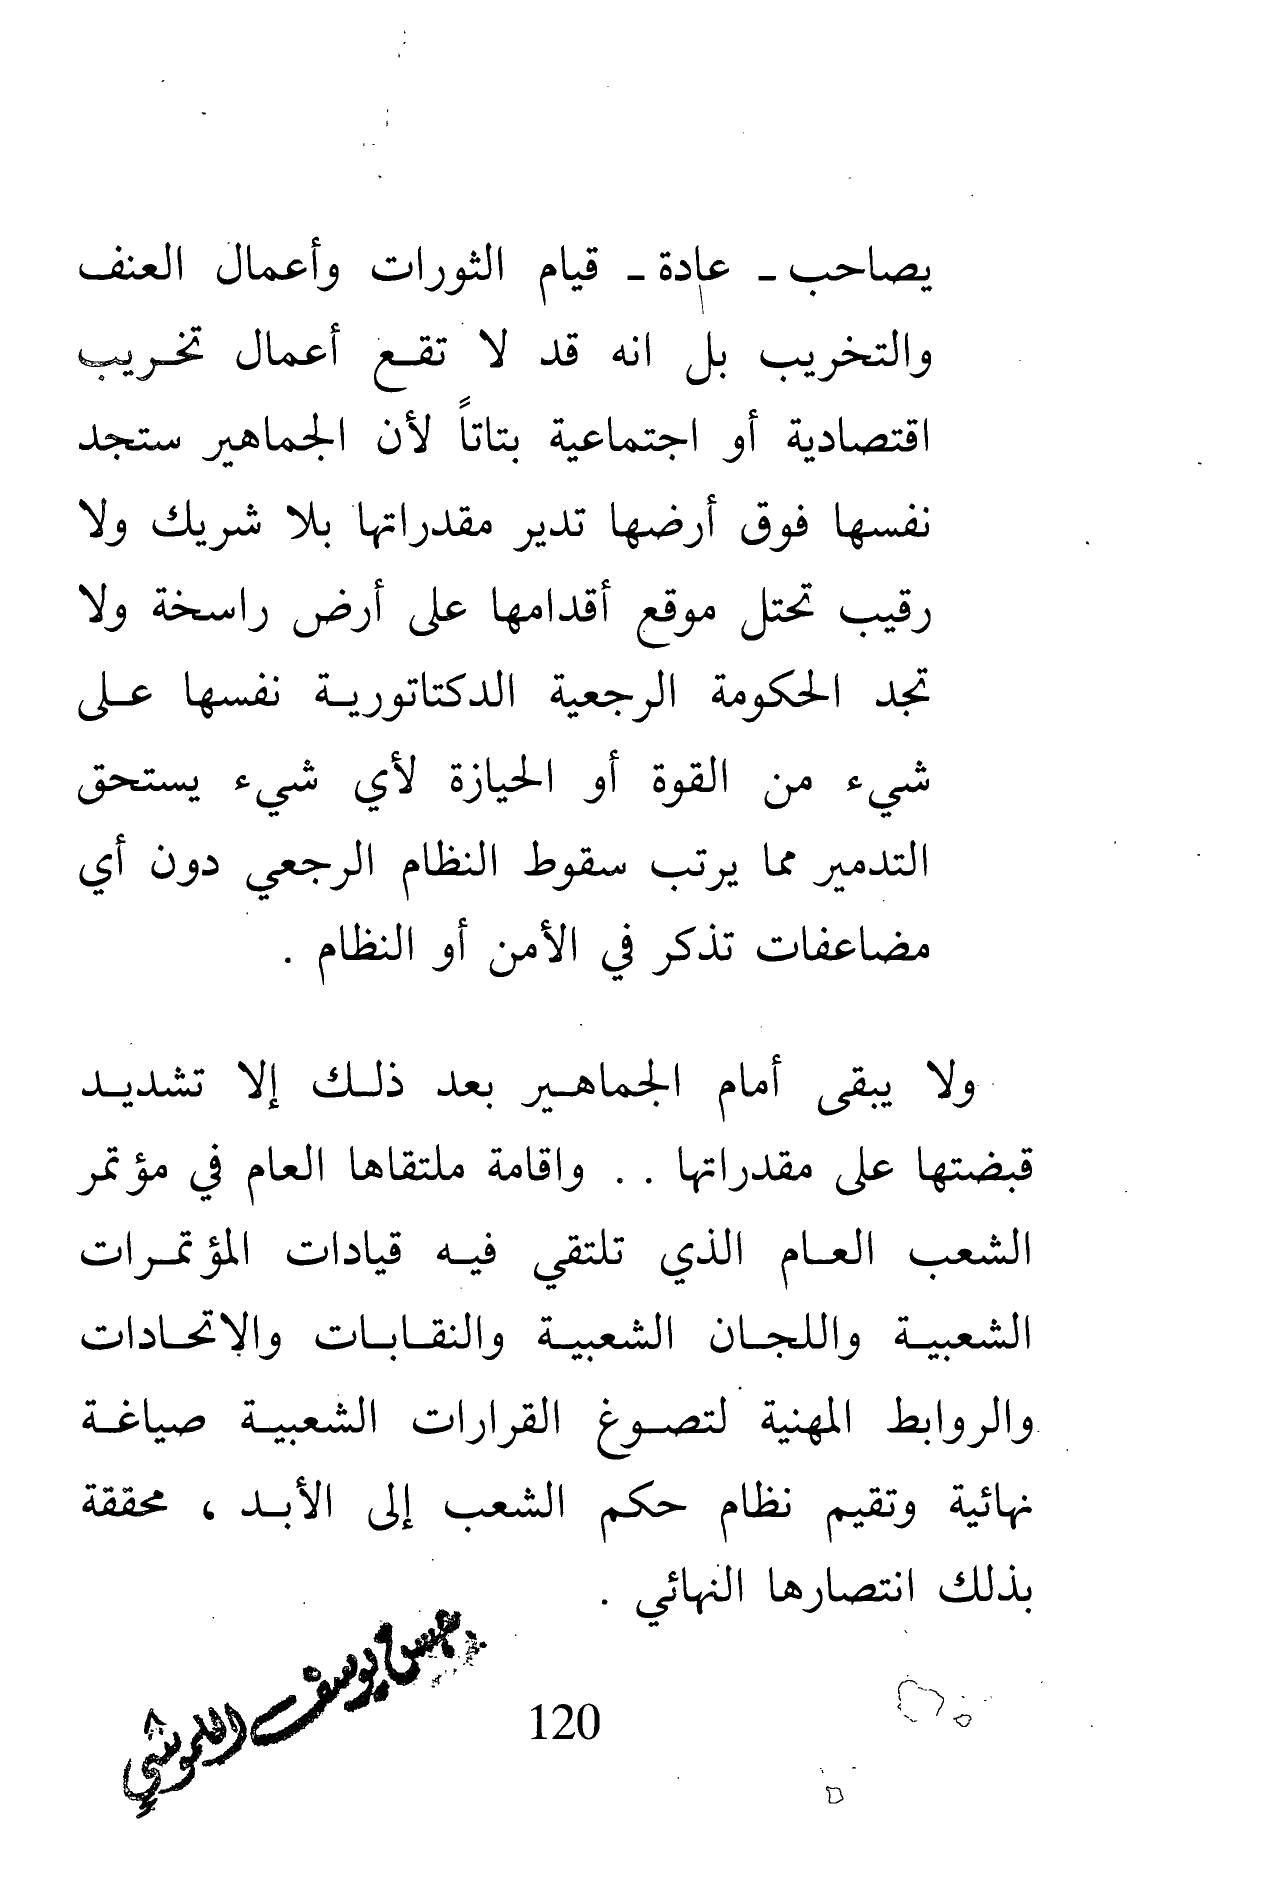 يصاحب ـ عادة ـ قيام الثورات وأعمال العنف
والتخريب بل انه قد لا تقع أعمال تخريب
اقتصادية أو اجتماعية بتاتاً لأن الجماهير ستجد
نفسها فوق أرضها تدير مقدراتها بلا شريك ولا
رقيب تحتل موقع أقدامها على أرض راسخة ولا
تجد الحكومة الرجعية الدكتاتورية نفسها على
شيء من القوة أو الحيازة لأي شيء يستحق
التدمير مما يرتب سقوط النظام الرجعي دون أي
مضاعفات تذكر في الأمن أو النظام .
ولا يبقى أمام الجماهير بعد ذلك إلا تشديد
قبضتها على مقدراتها . . واقامة ملتقاها العام في مؤتمر
الشعب العام الذي تلتقي فيه قيادات المؤتمرات
الشعبية واللجان الشعبية والنقابات والاتحادات
والروابط المهنية لتصوغ القرارات الشعبية صياغة
نهائية وتقيم نظام حكم الشعب إلى الأبد ، محققة
بذلك انتصارها النهائي .
يوسف اللموشي
120